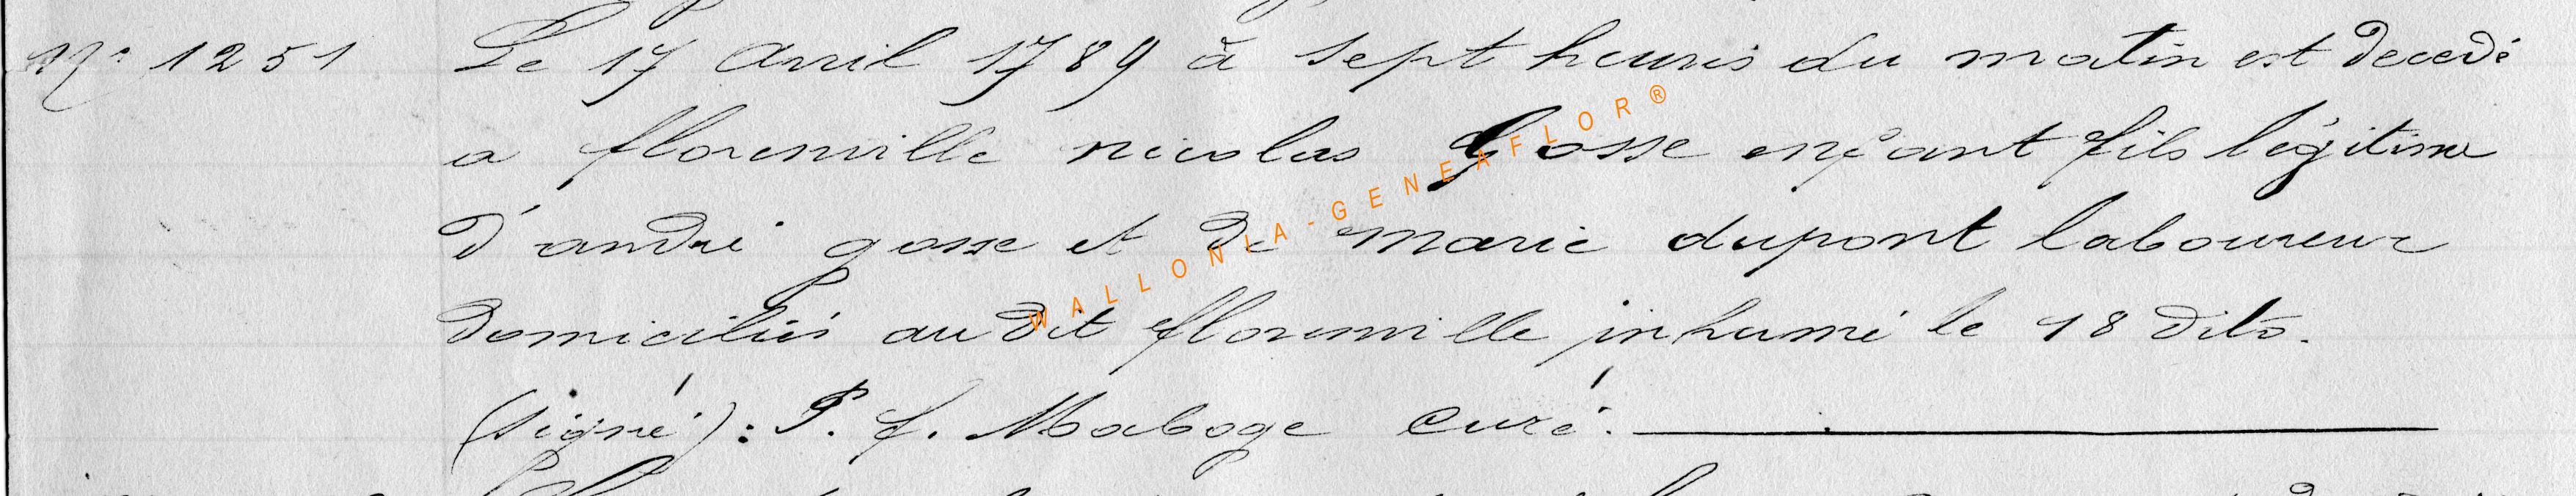 N° 1251 Le 17 avril 1789 à sept heures du matin est decedé
a florenville nicolas Gosse enfant fils légitime
d'andré gosse et de marie dupont laboureur
domiciliés audit florenville inhumé le 18 dito.
(signé): P. f. Maboge curé.
WALLONIA-GENEAFLOR®